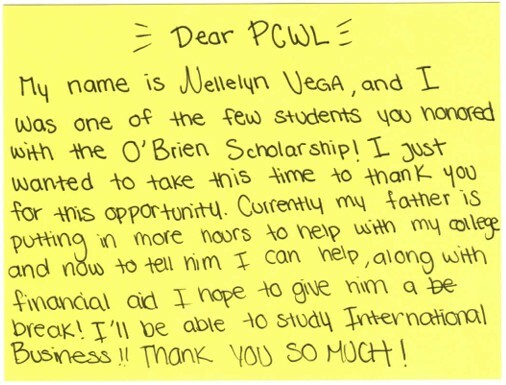 Dear PCWL
My name is Nellelyn VEGA, and I
was one of the few students you honored
with the O'Brien Scholarship! I just
wanted to take this time to thank you
for this opportunity. Currently my father is
putting in more hours to help with my college
and now to tell him I can help, along with
financial aid I hope to give him a be
break! I'll be able to study International
Business!! THANK YOU SO MUCH!